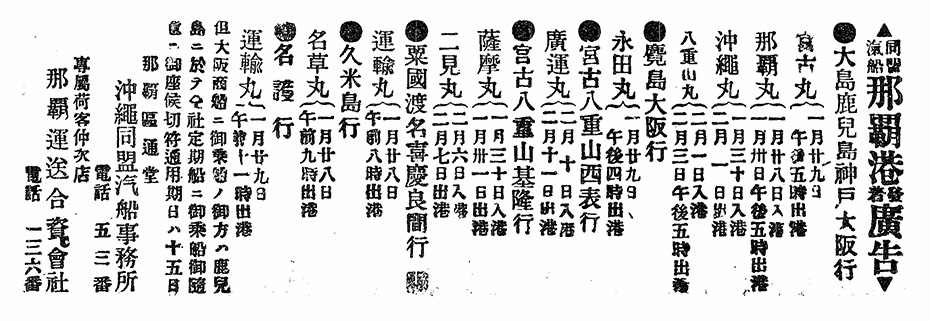 ▲同盟汽船那覇港發着廣告▼
●大島鹿兒島神戸大阪行
宮古丸 一月廿九日 午後五時出港
那覇丸 一月廿八日入港 一月卅日午後五時出港
沖繩丸 一月三十日入港 二月一日出港
八重山丸 二月一日入港 二月三日午後五時出港
●麑島大阪行
永田丸 一月廿九日、午後四時出港
●宮古八重山西表行
廣運丸 二月十日入港 二月十一日出港
●宮古八重山基隆行
薩摩丸 一月三十日入港 一月卅一日出港
二見丸 二月六日入港 二月七日出港
●粟國渡名喜慶良間行
運輸丸 一月廿八日 午前八時出港
●久米島行
名草丸 一月廿八日 午前九時出港
●名護行
運輸丸 一月廿九日 午前十一時出港
但大阪商船ニ御乘船ノ御方ハ鹿兒
島ニ於テ仝社定期船ニ御乘船御隨
意ニ御座候切符通用期日ハ十五日
那覇區通堂
沖繩同盟汽船事務所
電話 五三番
專屬荷客仲次店
那覇運送合資會社
電話 一三六番